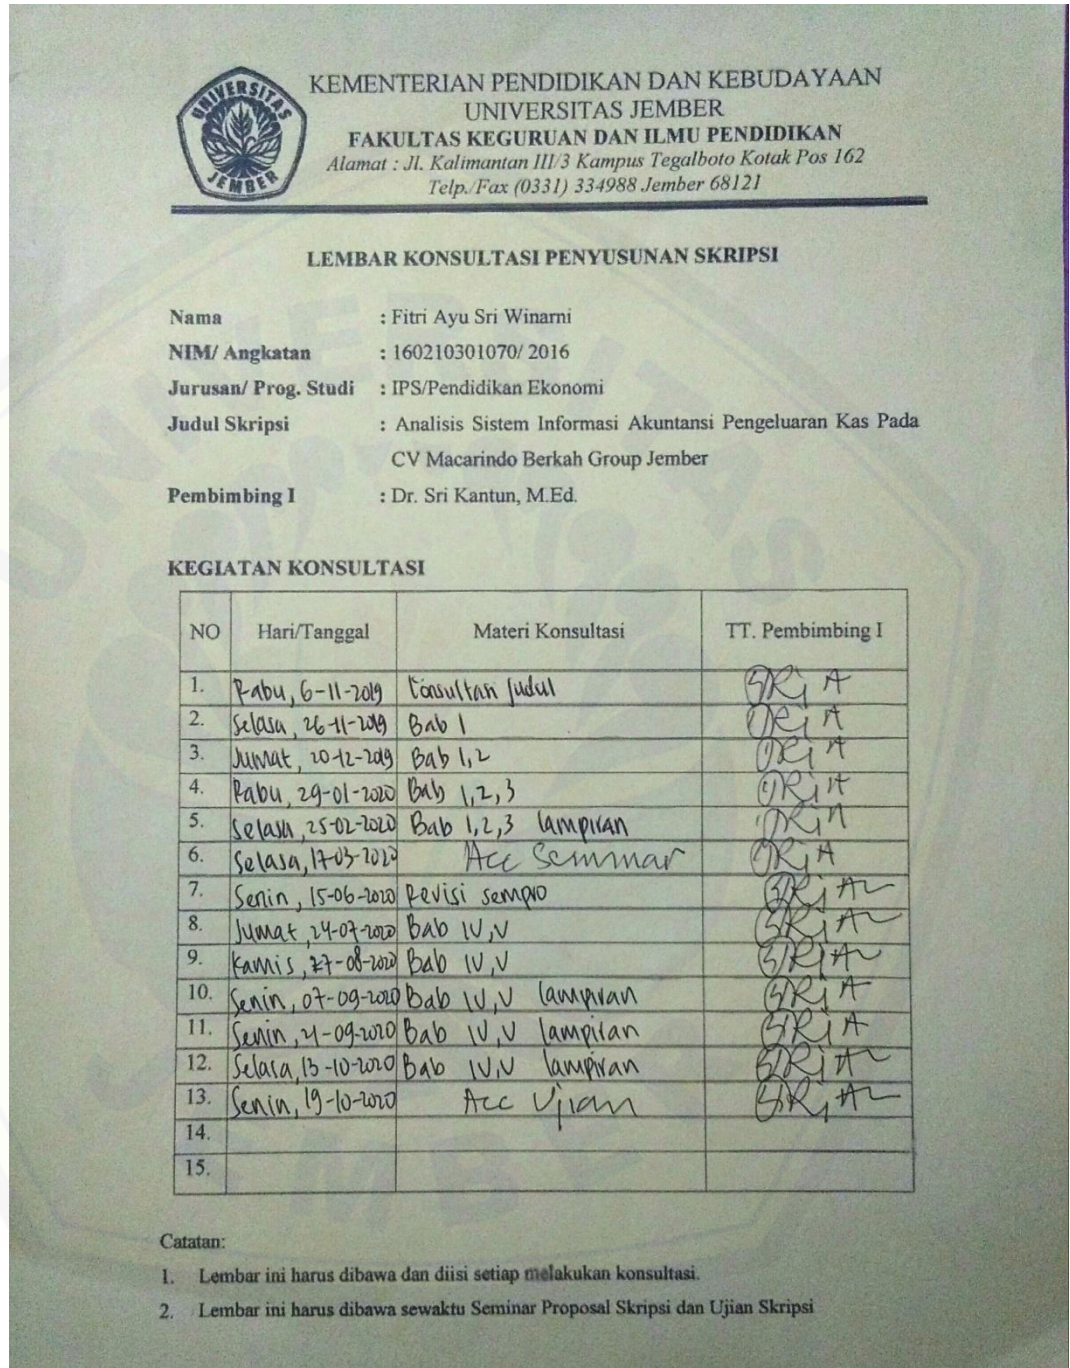 UNIVERSITAS
JEMBER
KEMENTERIAN PENDIDIKAN DAN KEBUDAYAAN
UNIVERSITAS JEMBER
FAKULTAS KEGURUAN DAN ILMU PENDIDIKAN
Alamat : Jl. Kalimantan III/3 Kampus Tegalboto Kotak Pos 162
Telp./Fax (0331) 334988 Jember 68121
LEMBAR KONSULTASI PENYUSUNAN SKRIPSI
Nama : Fitri Ayu Sri Winarni
NIM/ Angkatan : 160210301070/ 2016
Jurusan/ Prog. Studi : IPS/Pendidikan Ekonomi
Judul Skripsi : Analisis Sistem Informasi Akuntansi Pengeluaran Kas Pada
CV Macarindo Berkah Group Jember
Pembimbing I : Dr. Sri Kantun, M.Ed.
KEGIATAN KONSULTASI
NO Hari/Tanggal Materi Konsultasi TT. Pembimbing I
1. Rabu, 6-11-2019 Konsultan Judul
2. Selasa, 26-11-2019 Bab 1
3. Jumat, 20-12-2019 Bab 1,2
4. Rabu, 29-01-2020 Bab 1,2,3
5. Selasa, 25-02-2020 Bab 1,2,3 lampiran
6. Selasa, 17-03-2020 Acc Seminar
7. Senin, 15-06-2020 Revisi sempro
8. Jumat, 24-07-2020 Bab IV,V
9. Kamis, 27-08-2020 Bab IV,V
10. Senin, 07-09-2020 Bab IV,V lampiran
11. Senin, 21-09-2020 Bab IV,V lampiran
12. Selasa, 13-10-2020 Bab IV,V lampiran
13. Senin, 19-10-2020 Acc Ujian
14.
15.
Catatan:
1. Lembar ini harus dibawa dan diisi setiap melakukan konsultasi.
2. Lembar ini harus dibawa sewaktu Seminar Proposal Skripsi dan Ujian Skripsi